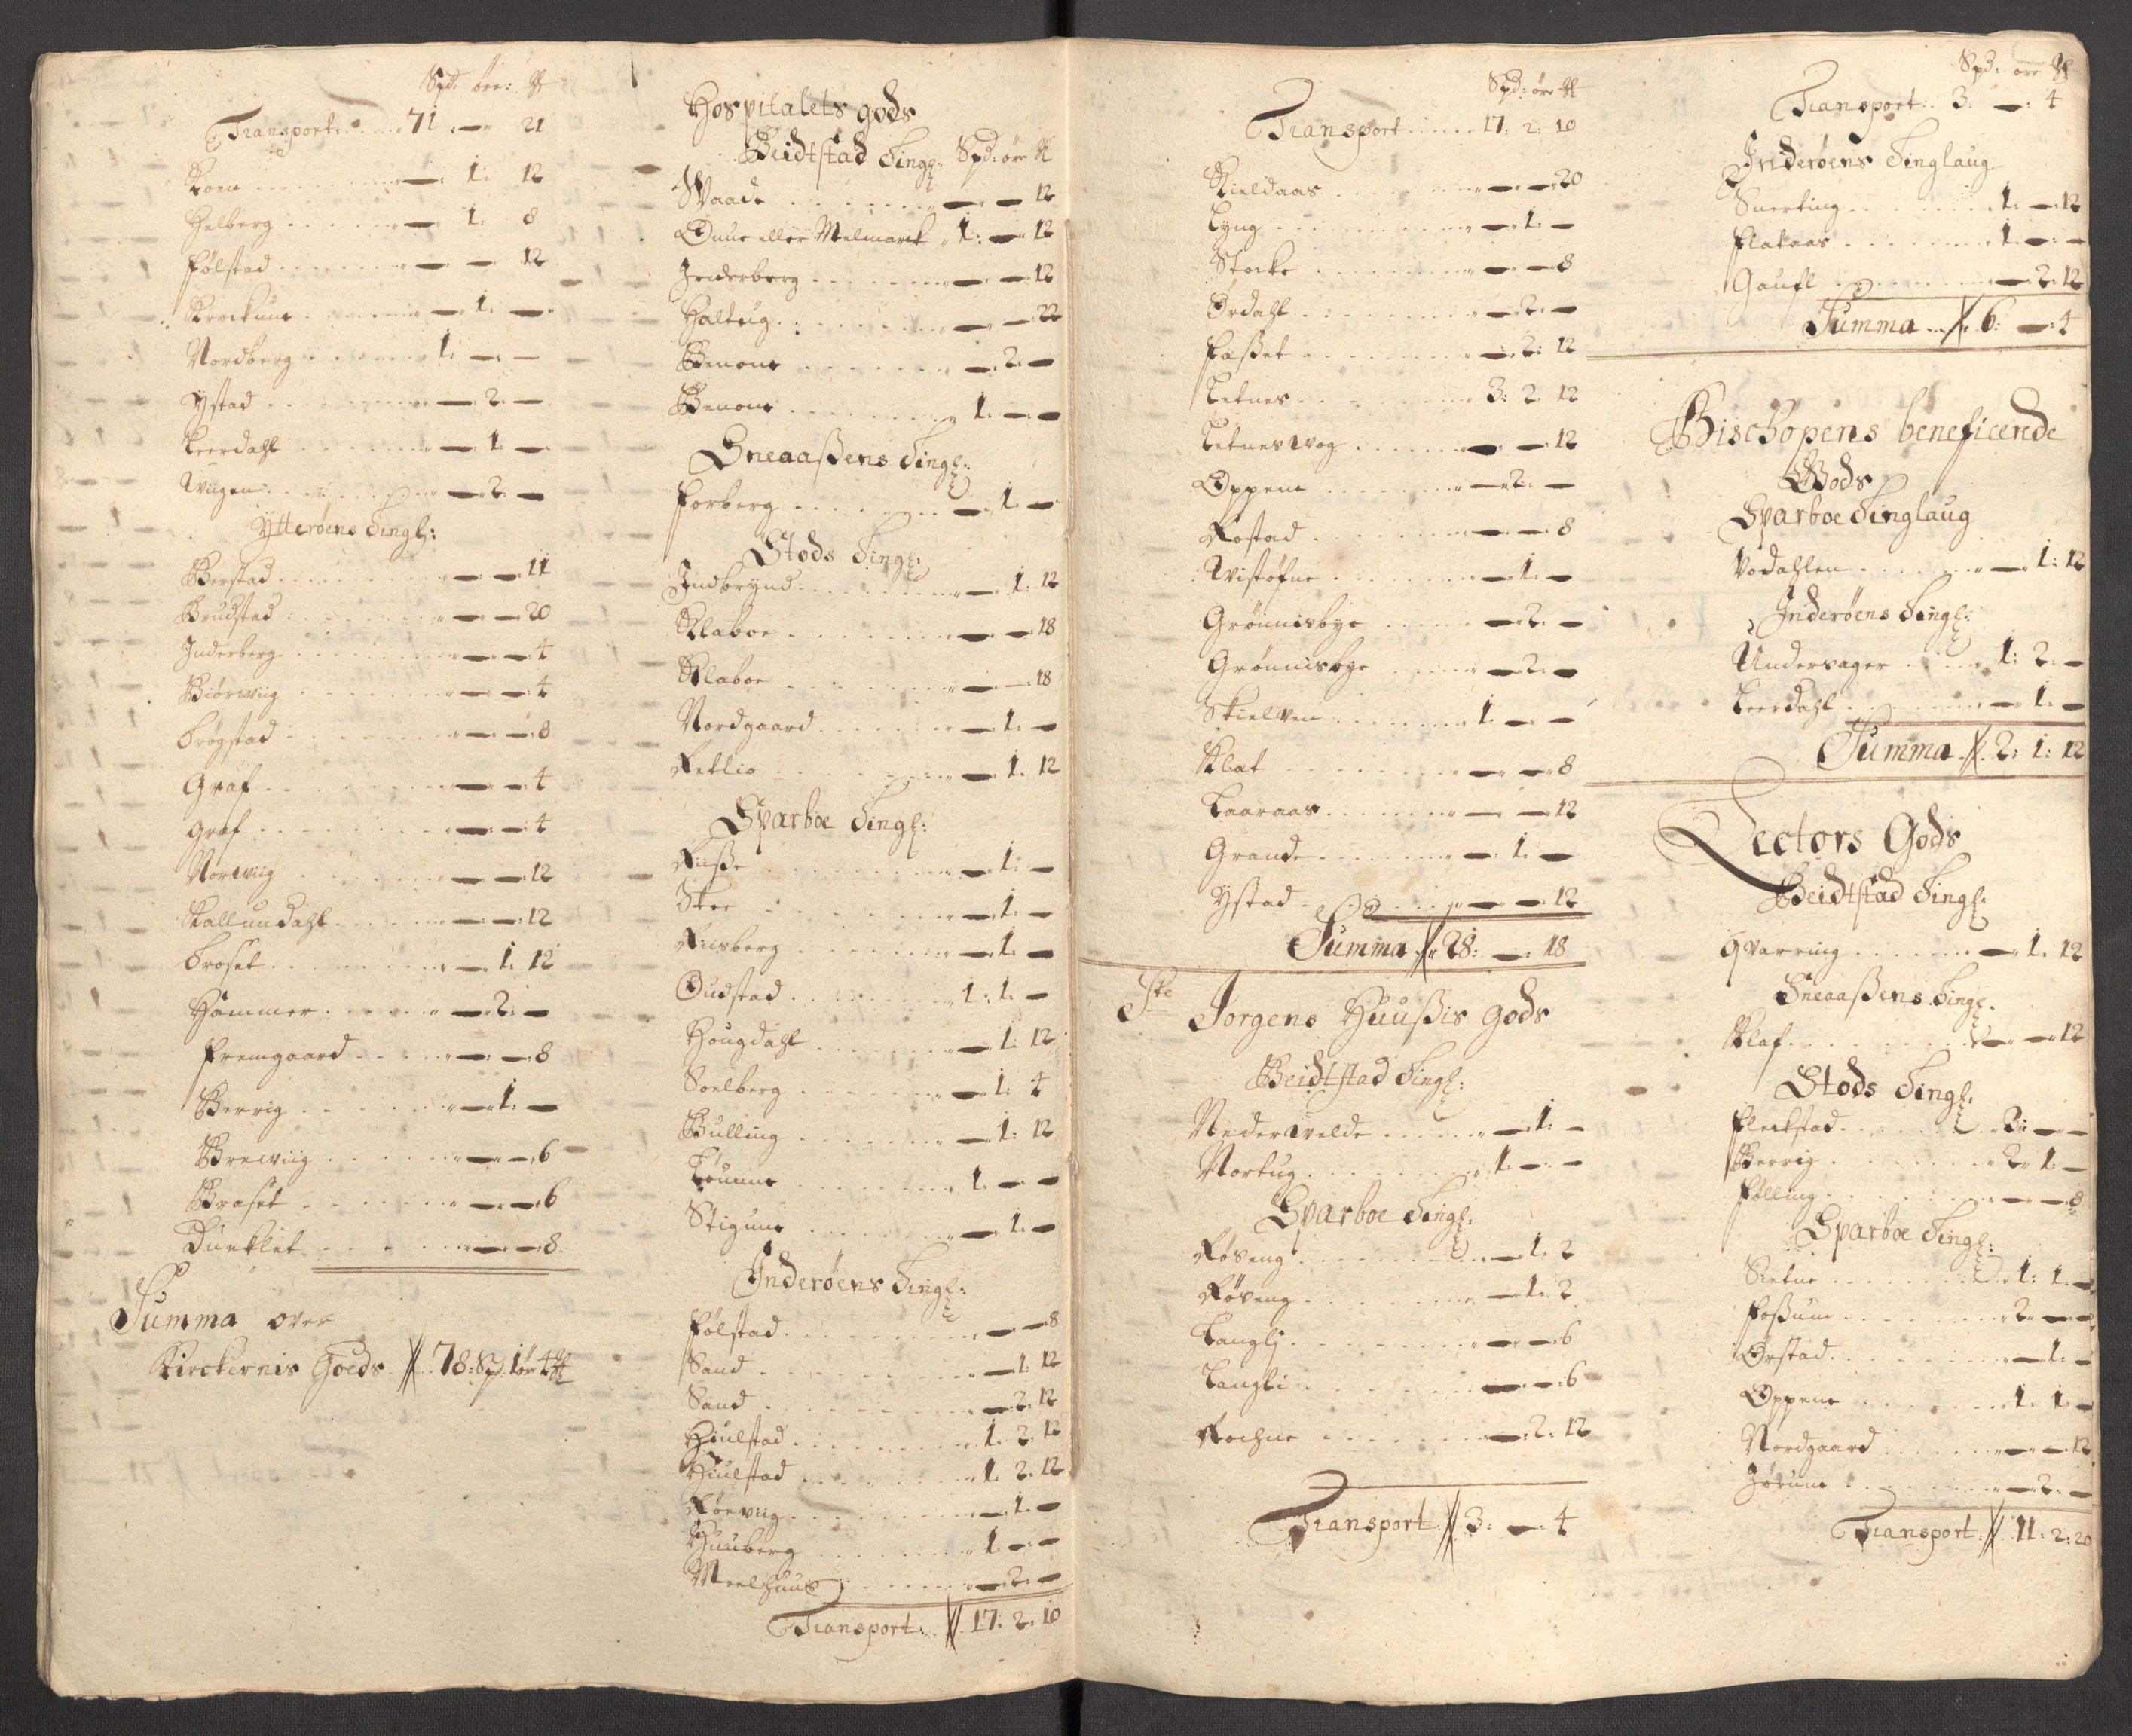 Spd: öre: ℔
Transport: . . . . 71 . — " 21
Koen . . . . — : 1: 12
Helberg . . . . — 1: 8
Følstad . . . . — — 12
Krockum . . . . — 1. —
Nordberg . . . . 1: — —
Ystad . . . . — 2 —
Leerdahl . . . . — 1 —
Wiigen . . . . — 2. —
Ytterøens Tingl:
Berstad . . . . — — 11
Brudstad . . . . — — 20
Inderberg . . . . — — 4
Biørwiig . . . . — — 4
Trøgstad . . . . — — 8
Graf . . . . — — 4
Graf . . . . — — 4
Norwiig . . . . — — 12
Kallundahl . . . . — — 12
Troset . . . . — 1: 12
Hammer . . . . — 2: —
Fremgaard . . . . — — 8
Berrig . . . . — 1: —
Brewiig . . . . — — 6
Braset . . . . — — 6
Duncklet . . . . — — 8
Summa over
Kirckernis Goeds // 78: Spd 1 ör 4 ℔
Hospitalets gods
Beidtstad Tingl: Spd: öre ℔
Waade . . . . — — 12
Duue eller Melmarck 1: — 12
Inderberg . . . . — — 12
Haltug . . . . — — 22
Benone . . . . — 2. —
Benone . . . . 1. — —
Sneaaßens Tingl:
Forberg . . . . — 1 —
Stods Tingl:
Indbrynd . . . . — 1: 12
Klaboe . . . . — — 18
Klaboe . . . . — — 18
Nordgaard . . . . — 1. —
Retlio . . . . — 1. 12
Sparboe Tingl:
Riiße . . . . — 1: —
Skee . . . . — 1: —
Riisberg . . . . — 1. —
Oudstad . . . . 1: 1. —
Hougdahl . . . . — 1: 12
Soelberg . . . . — 1: 4
Bulling . . . . — 1: 12
Tőmme . . . . 1. — —
Stigune . . . . — 1. —
Inderøens Tingl:
Følstad . . . . — — 8
Sand . . . . — 1: 12
Sand . . . . — 2. 12
Hiulstad . . . . 1. 2. 12
Hiulstad . . . . 1. 2. 12
Rørwiig . . . . — 1. —
Huuberg . . . . 1. — —
Meelhuus . . . . — 2. —
Transport: // 17. 2. 10
Spd: öre ℔
Transport . . . . 17: 2: 10
Kieldaas . . . . — — 20
Lyng . . . . — 1. —
Stocke . . . . — — 8
Ørdahl . . . . — 2. —
Faßet . . . . — 2: 12
Letnes . . . . 3: 2. 12
Letneswog . . . . — — 12
Oppem . . . . — 2. —
Rostad . . . . — — 8
Wistøfne . . . . — 1. —
Grønnisbye . . . . — 2. —
Grønnisbye . . . . — 2. —
Skielven . . . . 1. — —
Klat . . . . — — 8
Laaraas . . . . — — 12
Grande . . . . — 1. —
Ystad . . . . — — 12.
Summa // 28: — : 18
Ste Jorgens Huußis gods
Beidtstad Tingl:
Nederwelde . . . . — 1: —
Nortug . . . . 1. — —
Sparboe Tingl:
Røseng . . . . — 1: 2
Røseng . . . . — 1. 2
Langlj . . . . — — 6
Langli . . . . — — 6
Rochne . . . . — 2. 12
Transport // 3: — : 4
Spd: öre ℔
Transport: . 3: — : 4
Inderøens Tinglaug
Snerting . . . . 1: — 12
Flataas . . . . 1. — —
Gaufl . . . . — 2: 12
Summa // 6: — : 4
Bischopens beneficerede
Gods
Sparboe Tinglaug
Vodahlen . . . . — 1: 12
Inderøens Tingl:
Undersager . . . 1: 2: —
Leerdahl . . . . — 1: —
Summa // 2: 1: 12
Lectors Gods
Beidtstad Tingl:
Qvarring . . . . — 1. 12
Sneaaßens Tingl:
Klaf . . . . — — 12
Stods Tingl:
Fleckstad . . . . 2: — —
Berrig . . . . 2. 1. —
Følling . . . . — — 8
Sparboe Tingl:
Sætne . . . . 1: 1. —
Foßum . . . . 2. — —
Ørstad . . . . — 1. —
Oppem . . . . 1. 1. —
Nordgaard . . . . — — 12
Jørum . . . . — 2. —
Transport: // 11: 2: 20